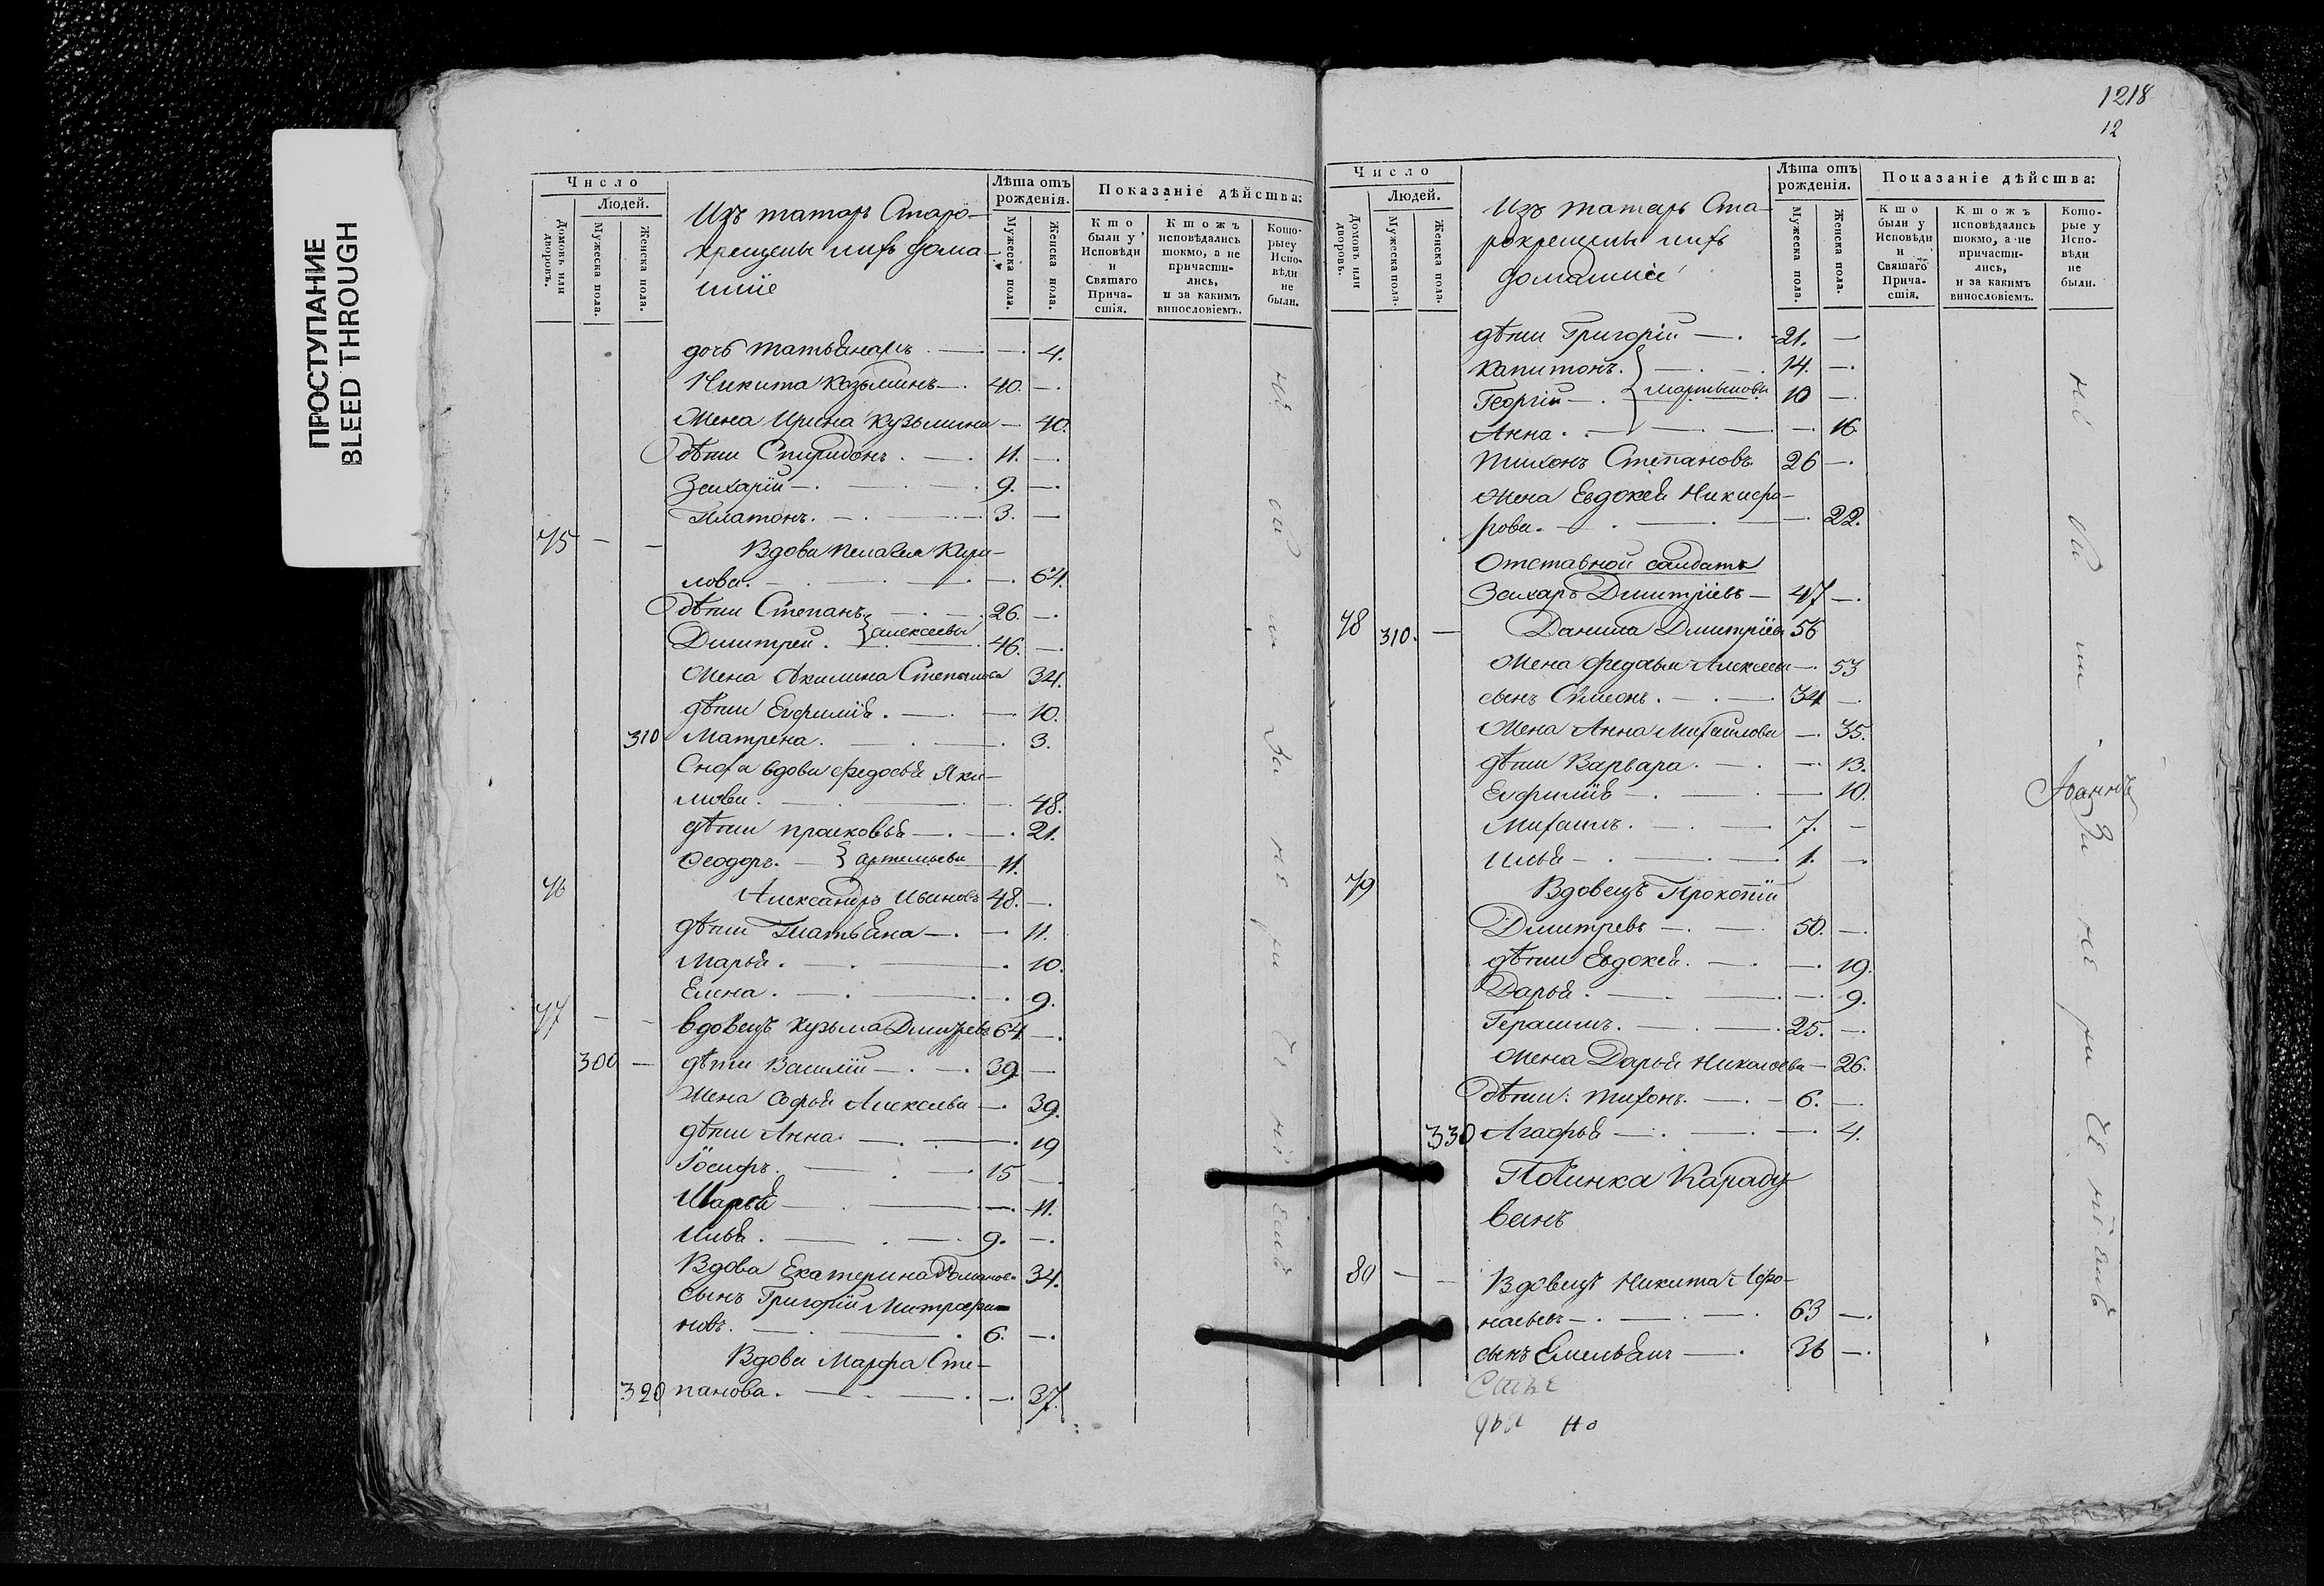 ПРОСТУПАНИЕ
BLEED THROUGH
Число
Людей.
Домовъ или дворовъ.
Мужеска пола.
Женска пола.
Изъ татаръ Старо-
крещены ихъ дома-
шніе
Лѣта отъ рожденія.
Мужеска пола.
Женска пола.
Показаніе дѣйства:
Кто были у Исповѣди и Святаго Причастія.
Ктожъ исповѣдались токмо, а не причастились, и за какимъ винословіемъ.
Которые у Исповѣди не были.
дочь Татьяна — 4.
Никита Козьминъ — 40. —
Жена Ирина Кузьмина — 40.
Дѣти Спиридонъ. — 11. —
Захарій — 9. —
Платонъ. — 3. —
75 — — Вдова Пелагея Кири-
лова. — 64.
Дѣти Степанъ — 26. —
Димитрей. } Алексеевы 46. —
Жена Акилина Степанова 34.
дѣти Евфимія. — 10.
310 Матрена. — 3.
Сноха вдова Федосья Яки-
мова. — 48.
дѣти Прасковья — 21.
Феодоръ. — } Артемьевы 11.
76 Александръ Ивановъ 48. —
дѣти Татьяна — 11.
Марья. — 10.
Елена. — 9.
77 — — вдовецъ Кузьма Димитревъ 64 —
300 — дѣти Василій — 39 —
Жена Софья Алексева — 39.
дѣти Анна. — 19
Іосифъ. — 15 —
Марья — 11.
Илья. — 9. —
Вдова Екатерина Романова 34.
Сынъ Григорій Митрофа-
новъ. — 6. —
Вдова Марфа Сте-
320 панова. — 37.
1218
12
Число
Людей.
Домовъ или дворовъ.
Мужеска пола.
Женска пола.
Изъ татаръ Ста-
рокрещены ихъ
домашніе
Лѣта отъ рожденія.
Мужеска пола.
Женска пола.
Показаніе дѣйства:
Кто были у Исповѣди и Святаго Причастія.
Ктожъ исповѣдались токмо, а не причастились, и за какимъ винословіемъ.
Которые у Исповѣди не были.
дѣти Григорій — 21. —
Капитонъ. } — 14. —
Георгій — } Мартыновы 10 —
Анна. — 16.
Тихонъ Степановъ 26 —
Жена Евдокея Никифо-
рова. — 22.
Отставной салдатъ
Захаръ Димитріевъ — 47 —
78 310. — Данила Димитріевъ 56
Жена Федосья Алексеева — 53
сынъ Симеонъ. — 34 —
Жена Анна Михайлова — 35.
дѣти Варвара. — 13.
Евфимія — 10.
Михаилъ. — 7. —
Илья — 1. —
Іоаннъ
79 Вдовецъ Прокопій
Димитревъ — 50. —
дѣти Евдокея. — 19.
Дарья. — 9.
Герасимъ. — 25. —
Жена Дарья Николаева — 26.
Дѣти: Тихонъ. — 6. —
330 Агафья — 4.
Починка Караду
ванъ
80 — — Вдовецъ Никита Афо-
насьевъ — 63 —
сынъ Емельянъ — 36 —